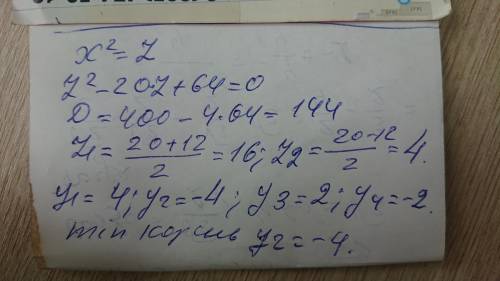 x²=Z
Z²-20Z+64=0
D=400-4·64=144
Z₁=(20+12)/2=16; Z₂=(20-12)/2=4.
y₁=4; y₂=-4; y₃=2; y₄=-2.
min корень y₂=-4.